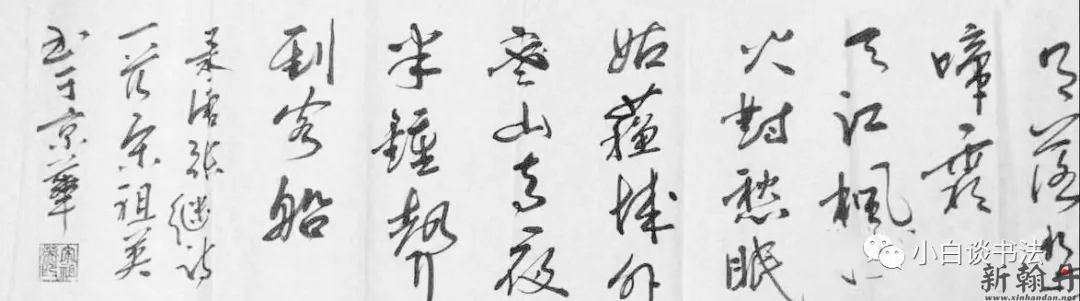 月落烏
啼霜
天江楓
火對愁眠
姑蘇城外
寒山寺夜
半鐘聲
到客船
录唐張继诗
一首宋祖英
书于京華
小白谈书法
新翰丹
www.xinhandan.net